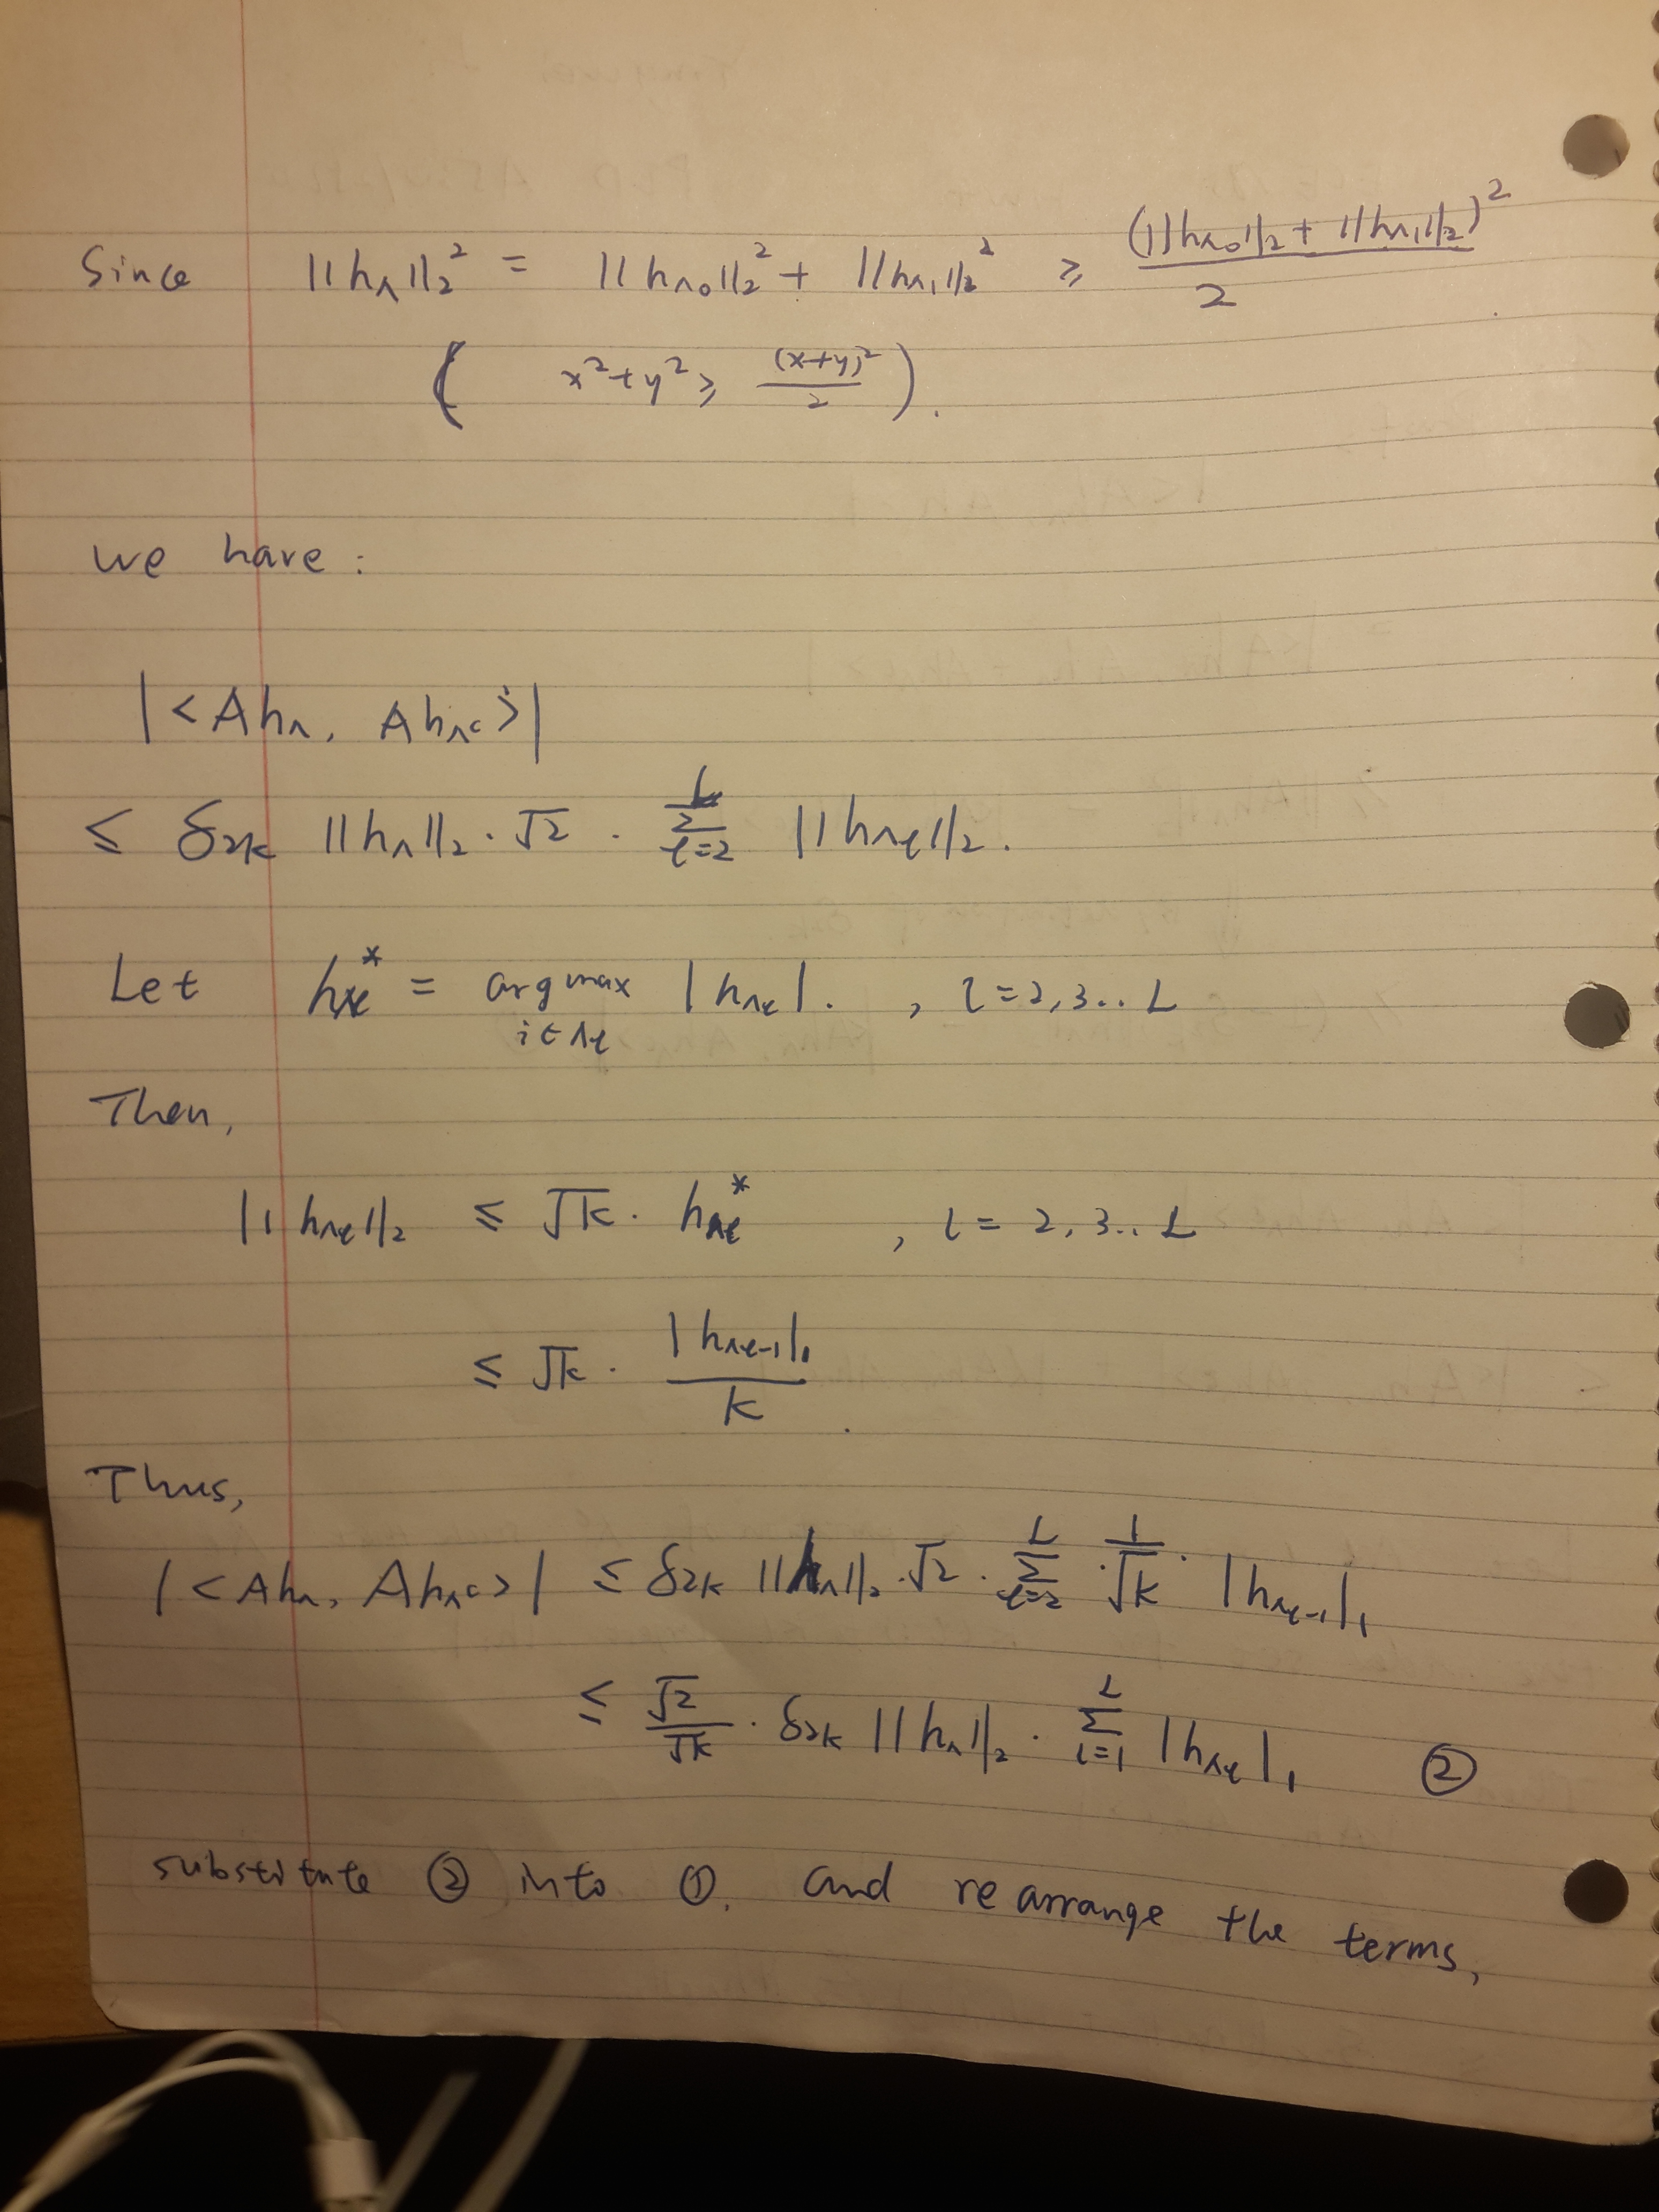 Since ||h_Λ||₂² = ||h_Λ₀||₂² + ||h_Λ₁||₂² ≥ (||h_Λ₀||₂ + ||h_Λ₁||₂)² / 2
( x² + y² ≥ (x+y)² / 2 ).
we have:
|<Ah_Λ, Ah_Λᶜ>|
≤ δ₂ₖ ||h_Λ||₂ · √2 · Σ_{ℓ=2}^{L} ||h_Λℓ||₂.
Let h_Λℓ* = argmax_{i∈Λℓ} |h_Λℓ|. , l = 2, 3.. L
Then,
||h_Λℓ||₂ ≤ √k · h_Λℓ* , l = 2, 3.. L
≤ √k · |h_Λℓ₋₁|₁ / k .
Thus,
|<Ah_Λ, Ah_Λᶜ>| ≤ δ₂ₖ ||h_Λ||₂ · √2 · Σ_{ℓ=2}^{L} · 1/√k · |h_Λℓ₋₁|₁
≤ √2/√k · δ₂ₖ ||h_Λ||₂ · Σ_{l=1}^{L} |h_Λℓ|₁ ②
substitute ② into ①, and rearrange the terms,